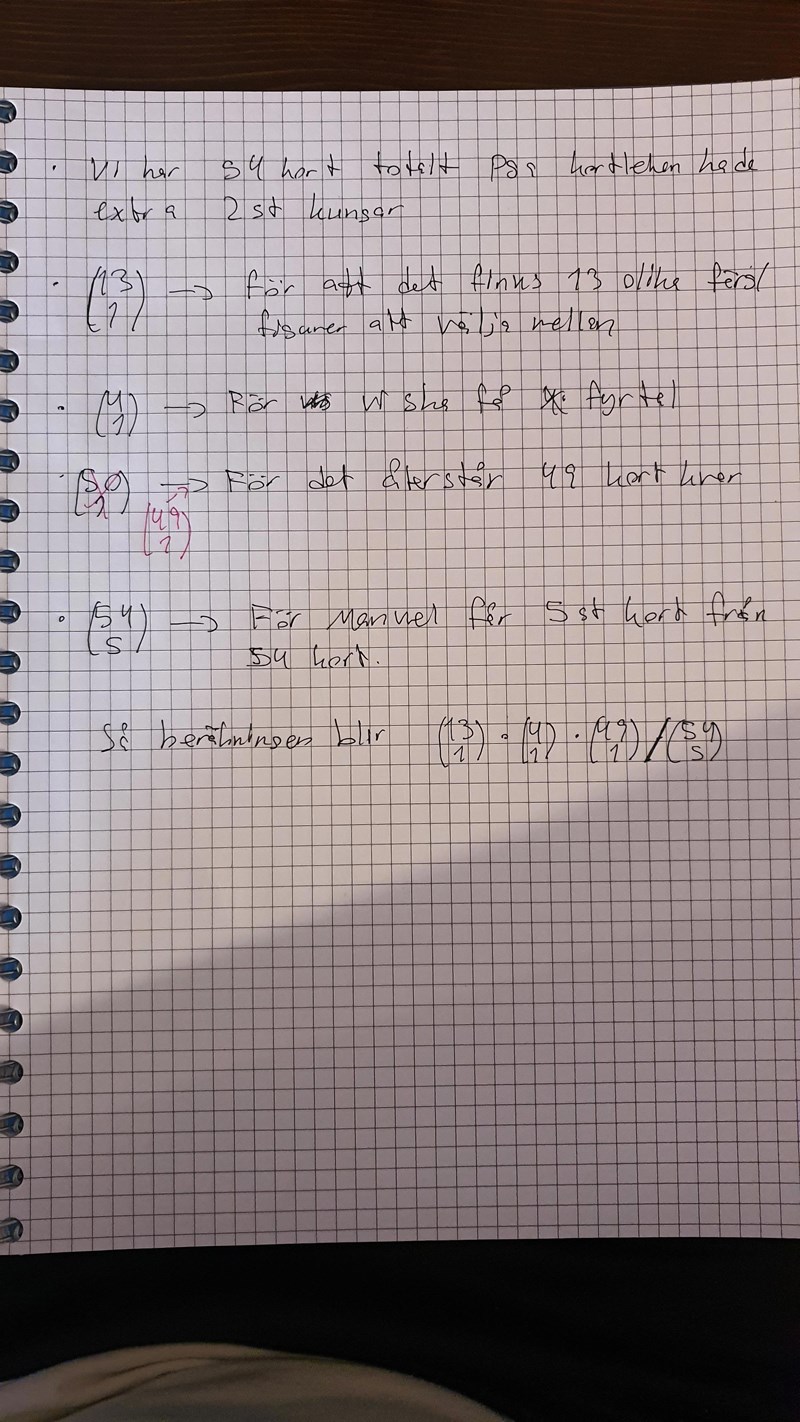 · Vi har 54 kort totalt pga kortleken hade
extra 2st kungar
· (13 1) → För att det finns 13 olika
figurer att välja mellan
· (4 1) → För vi ska få fyrtal
· (50 1) → För det återstår 49 kort kvar
(49 1)
· (54 5) → För Manuel får 5st kort från
54 kort.
Så beräkningen blir (13 1) · (4 1) · (49 1) / (54 5)